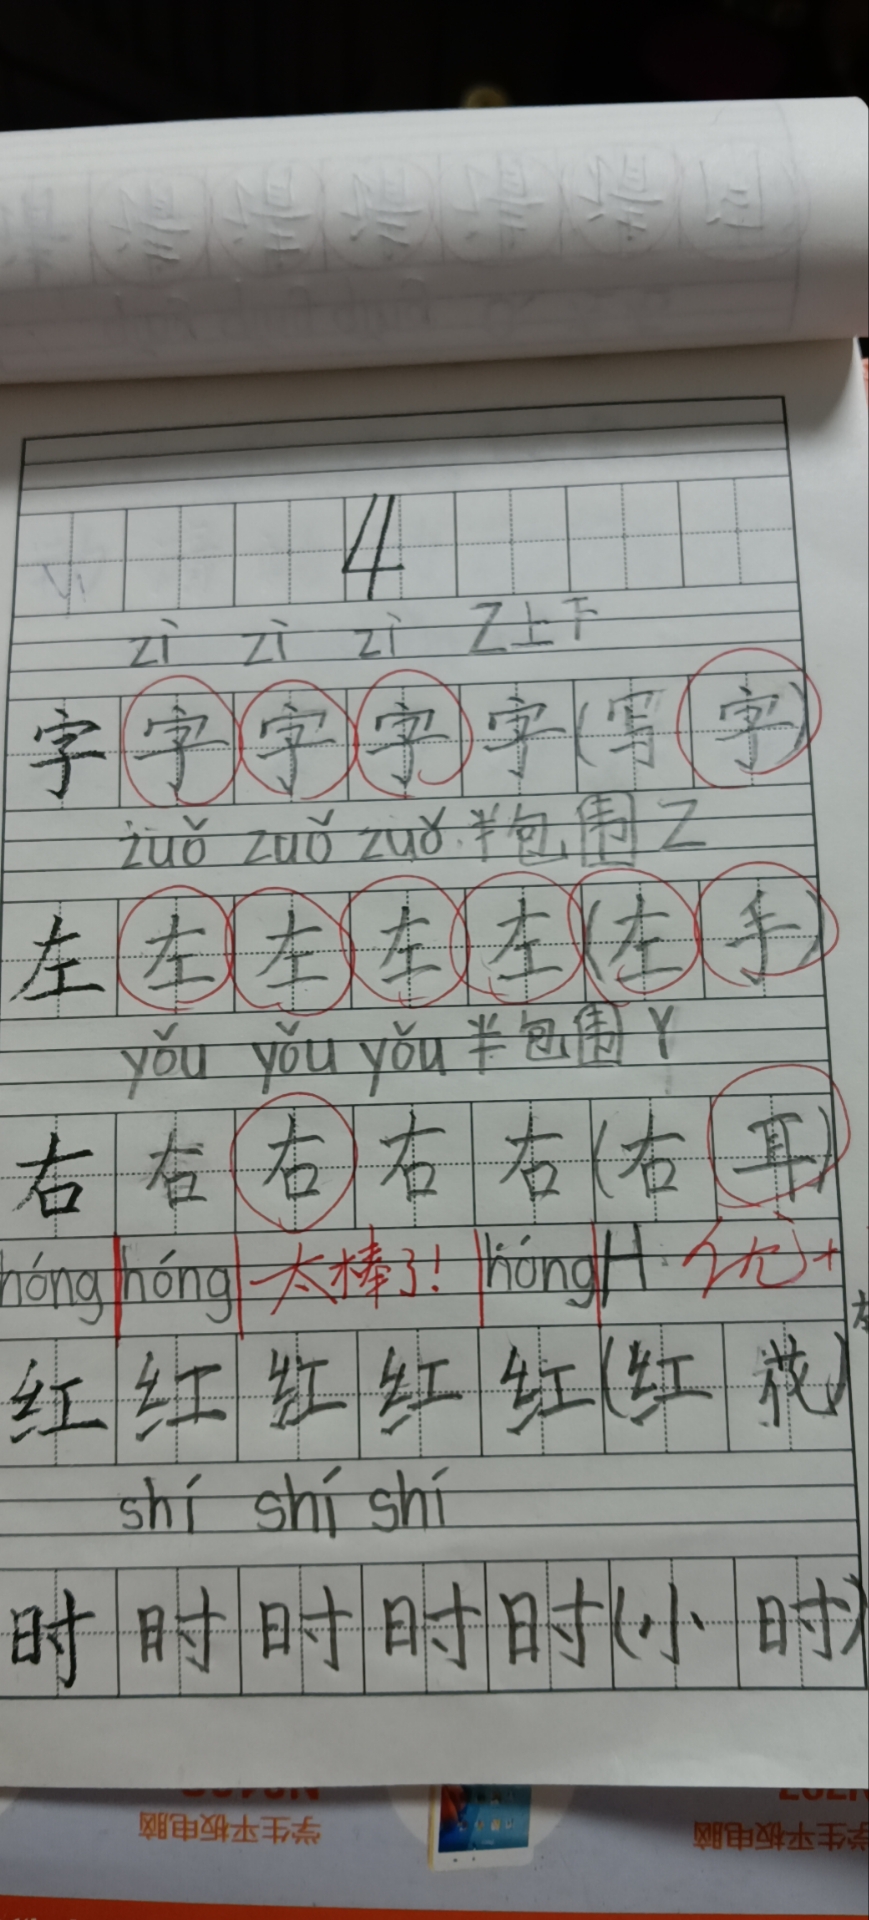 4
zì zì zì Z上下
字字字字字(写字)
zuǒ zuǒ zuǒ 半包围 Z
左左左左左(左手)
yǒu yǒu yǒu 半包围 Y
右右右右右(右耳)
hóng hóng 太棒了! hóng H 优+
红红红红红(红花)
shí shí shí
时时时时时(小时)
学生平板电脑
学生平板电脑